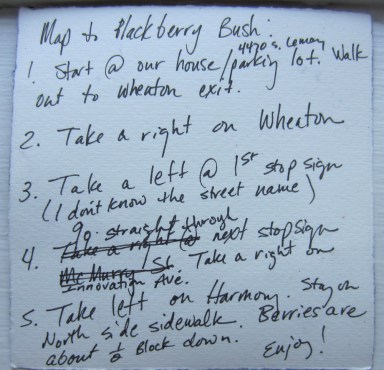 Map to Blackberry Bush:
1. Start @ our house/parking lot. Walk
4470 S. Lemay
out to Wheaton exit.
2. Take a right on Wheaton
3. Take a left @ 1st stop sign
(I don't know the street name)
go straight through
4. Take a right @ next stop sign
McMurry St. Take a right on
Innovation Ave.
5. Take left on Harmony. Stay on
North side sidewalk. Berries are
about 1/2 Block down.
Enjoy!